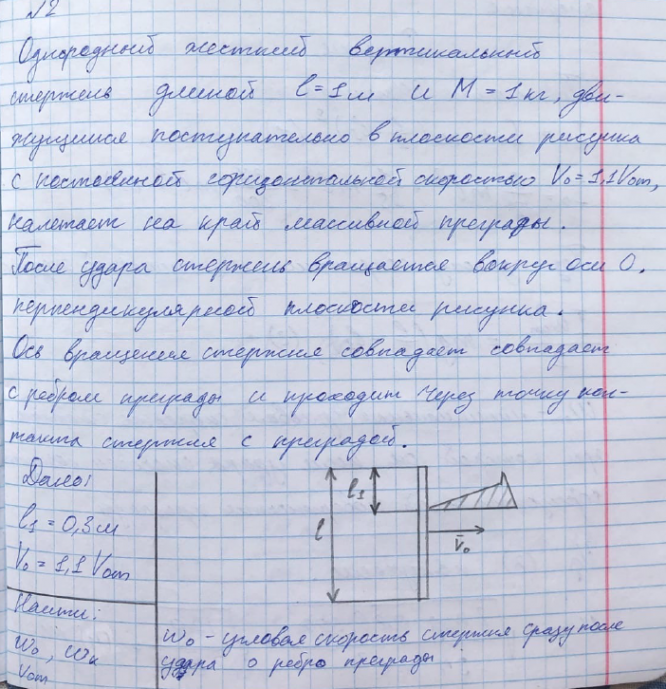 №2
Однородный жесткий вертикальный
стержень длиной l=1м и M=1кг, дви-
жущийся поступательно в плоскости рисунка
с постоянной горизонтальной скоростью V₀=1,1Vот,
налетает на край массивной преграды.
После удара стержень вращается вокруг оси O.
перпендикулярной плоскости рисунка.
Ось вращения стержня совпадает совпадает
с ребром преграды и проходит через точку кон-
такта стержня с преградой.
Дано:
l₁=0,3м
V₀=1,1Vот
Найти:
ω₀, ωк
Vот
l
l₁
V̄₀
ω₀ - угловая скорость стержня сразу после
удара о ребро преграды